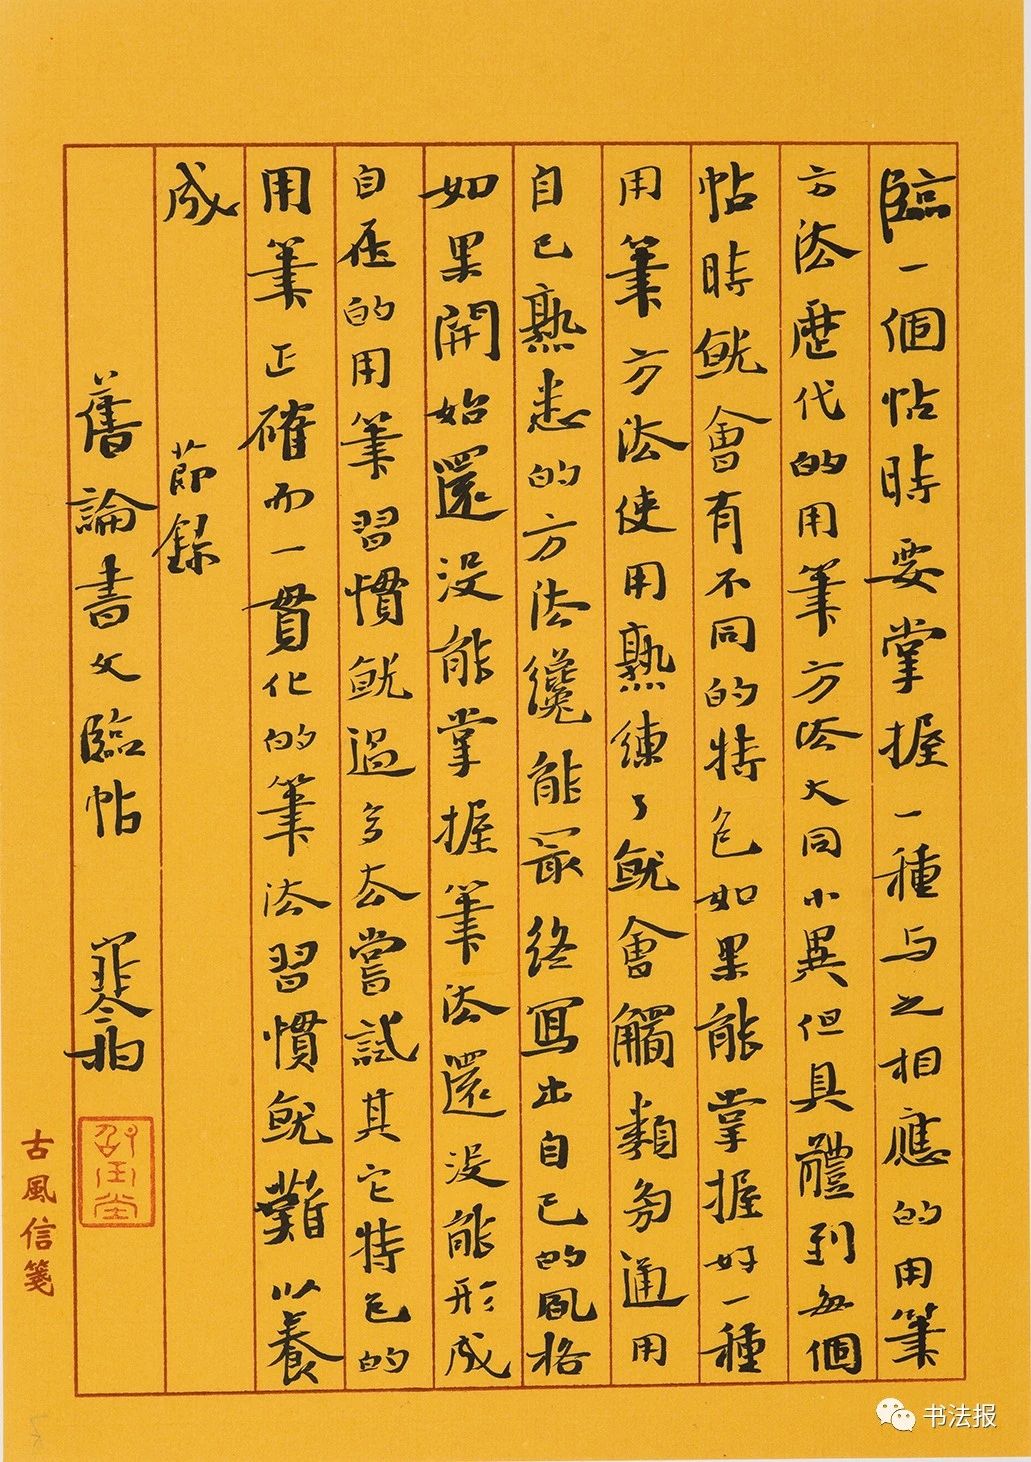 臨一個帖時要掌握一種与之相應的用筆
方法歷代的用筆方法大同小異但具體到每個
帖時就會有不同的特色如果能掌握好一種
用筆方法使用熟練了就會觸類旁通用
自己熟悉的方法纔能最終寫出自己的風格
如果開始還沒能掌握筆法還沒能形成
自在的用筆習慣就過多去嘗試其它特色的
用筆正確而一貫化的筆法習慣就難以養
成
節錄
舊論書文臨帖
古風信箋
书法报